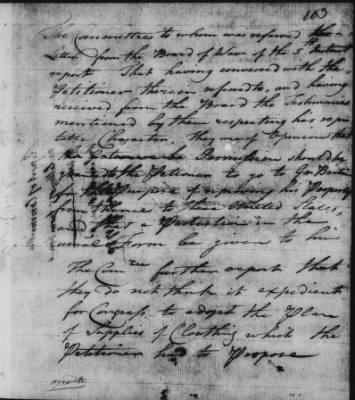 163
The Committee to whom was referred the
Letter from the Board of War of the 5 Instant
report That having conversed with the
Petitioner therein referred to, and having
received from the Board the Testimonies
mentioned by them respecting his
Character, they are of Opinion that
Permission should be
to the Petitioner to go to Gr. Britain
for the Purpose of removing his Property
from thence to these United States,
and that a Protection in the
usual Form be given to him
The Com.ee further report that
they do not think it expedient
for Congress to adopt the Plan
of Supplies of Cloathing which the
Petitioner had to Propose